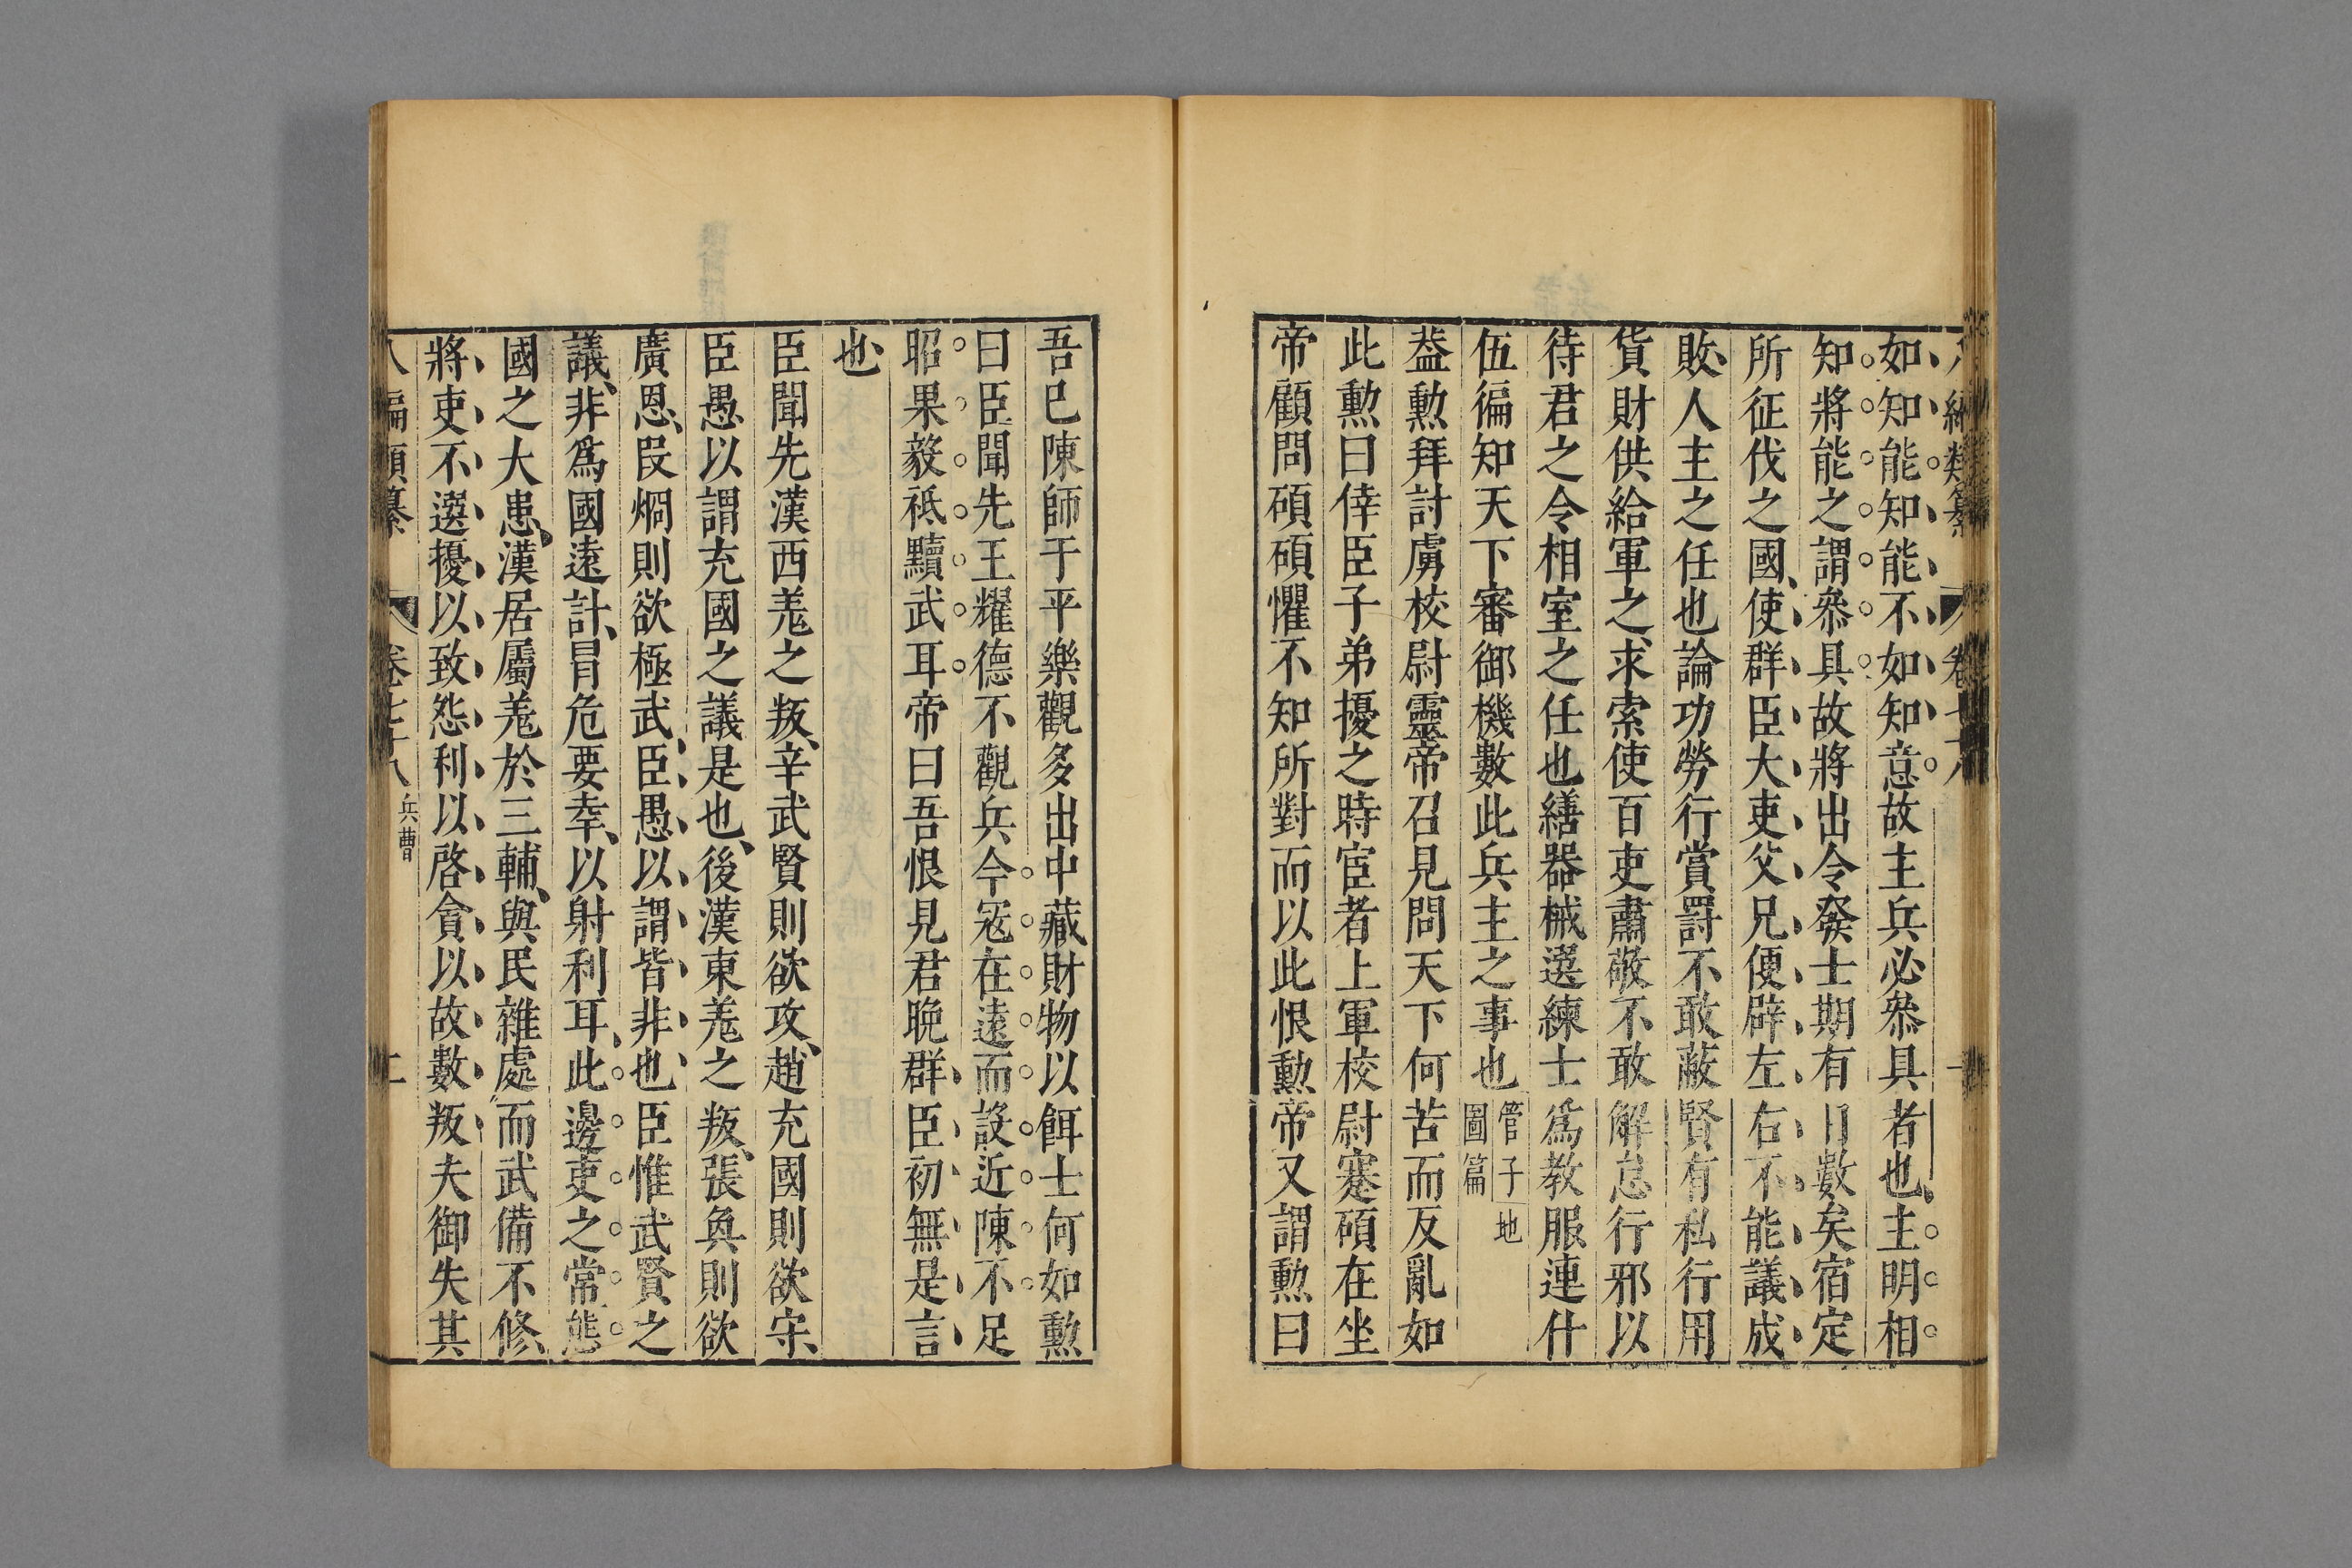 八編類纂 卷七十八
如知能知能不如知意故主兵必叅具者也主明相
知將能之謂叅具故將出令發士期有日數矣宿定
所征伐之國使群臣大吏父兄便辟左右不能議成
敗人主之任也論功勞行賞罰不敢蔽賢有私行用
貨財供給軍之求索使百吏肅敬不敢解怠行邪以
待君之令相室之任也繕器械選練士為教服連什
伍徧知天下審御機數此兵主之事也管子地
圖篇
葢勲拜討虜校尉靈帝召見問天下何苦而反亂如
此勲曰倖臣子弟擾之時宦者上軍校尉蹇碩在坐
帝顧問碩碩懼不知所對而以此恨勲帝又謂勲曰
吾已陳師于平樂觀多出中藏財物以餌士何如勲
曰臣聞先王耀德不觀兵今寇在遠而設近陳不足
昭果毅祗黷武耳帝曰吾恨見君晚群臣初無是言
也
臣聞先漢西羗之叛辛武賢則欲攻趙充國則欲守
臣愚以謂充國之議是也後漢東羗之叛張奐則欲
廣恩叚熲則欲極武臣愚以謂皆非也臣惟武賢之
議非爲國遠計冐危要幸以射利耳此邊吏之常態
國之大患漢居屬羗於三輔與民雜處而武備不修
將吏不選擾以致怨利以啓貪以故數叛夫御失其
八編類纂 卷七十八 兵曹